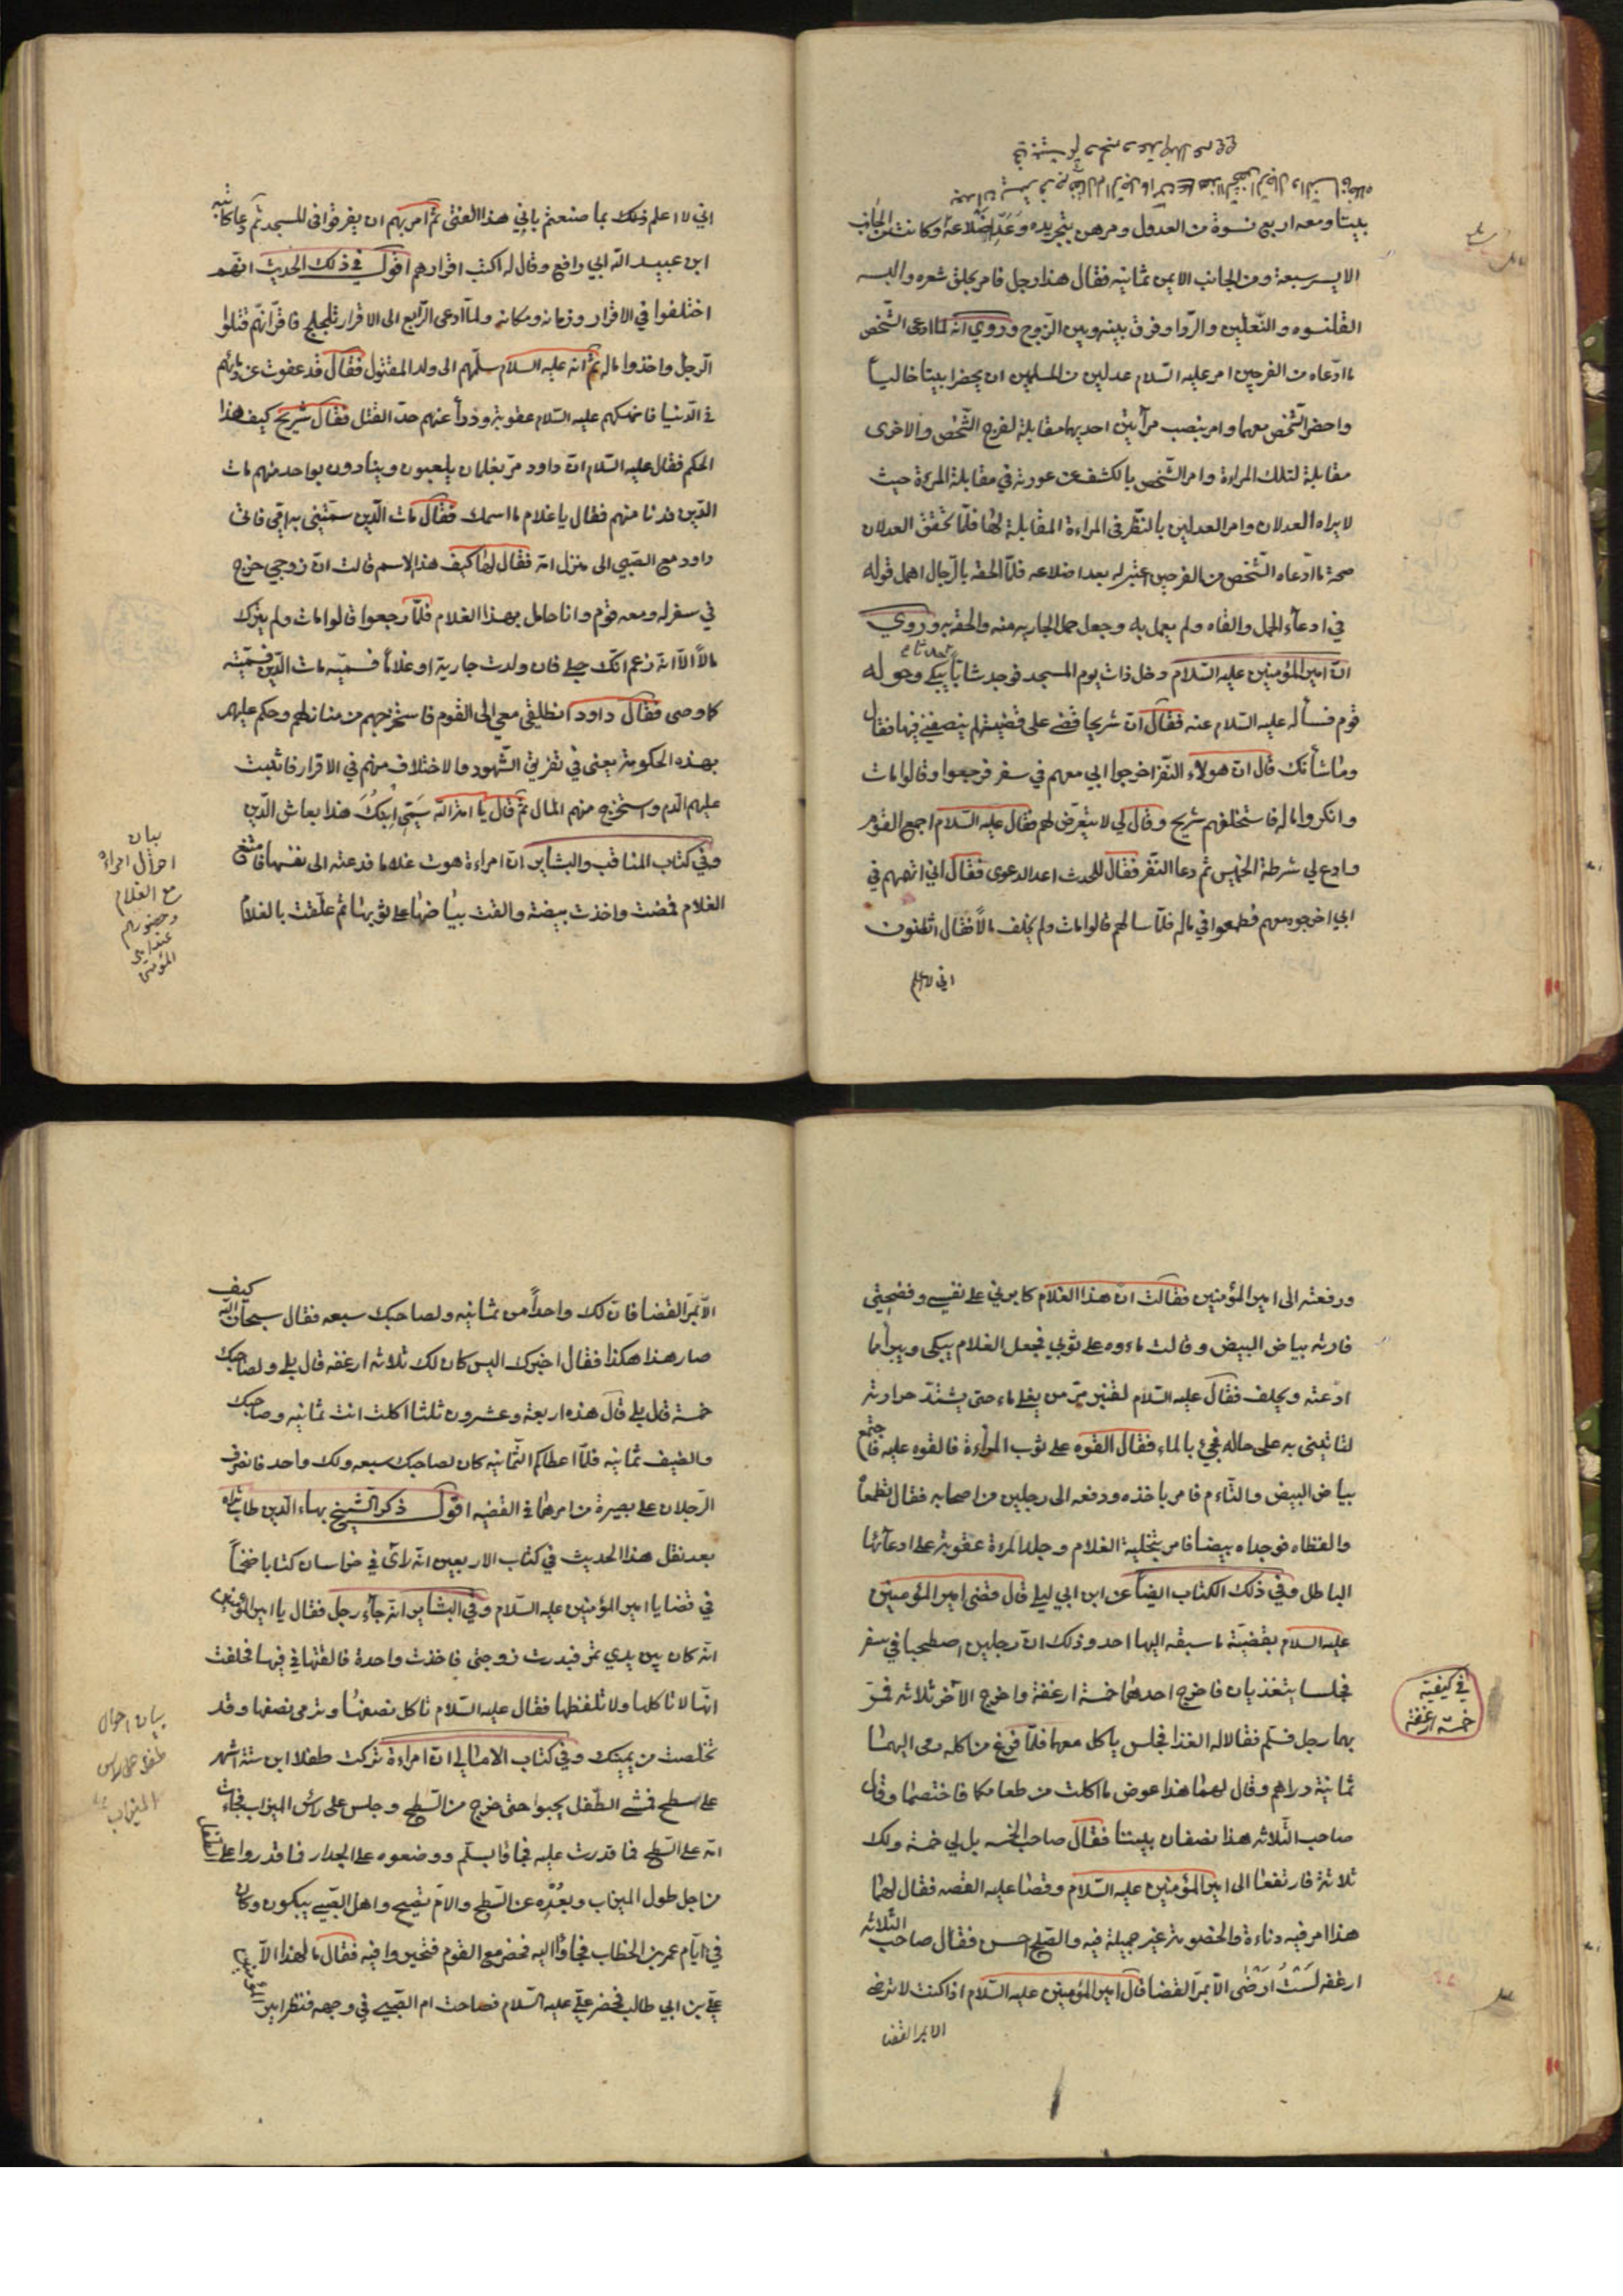 بيتا ومعه اربع نسوة من العدول ومرهن بتجريده وعد اضلاعه وكانت من الجانب
الايسر سبعة ومن الجانب الايمن ثمانيه فقال هذا رجل فامر بحلق شعره والبسه
القلنسوه والنعلين والردا وفرق بينه وبين الزوج وروي انه لما ادعى الشخص
ما ادعاه من الفرجين امر عليه السلام عدلين من المسلمين ان يحضرا بيتا خالياً
واحضر الشخص معهما وامر بنصب مرآتين احديهما مقابلة لفرج الشخص والاخرى
مقابلة لتلك المراءة وامر الشخص بالكشف عن عورته في مقابلة المرءة حيث
لا يراه العدلان وامر العدلين بالنظر في المراءة المقابلة لها فلما تحقق العدلان
صحة ما ادعاه الشخص من الفرجين اعتبر له بعد اضلاعه فلما الحقه بالرجال اهمل قوله
في ادعاء الحمل والقاه ولم يعمل به وجعل حمل الجاريه منه والحقه به وروي
ان امير المؤمنين عليه السلام دخل ذات يوم المسجد فوجد شاباً يبكي وحوله
قوم فسأله عليه السلام عنه فقال ان شريحا قضى على قضية لم ينصفني فيها فقال
وما شأنك قال ان هولاء النفر اخرجوا ابي معهم في سفر فرجعوا وقالوا مات
وانكروا ماله فاستحلفهم شريح وقال لي لا تتعرض لهم فقال عليه السلام اجمع القوم
وادع لي شرطة الخميس ثم دعا النفر فقال للحدث اعد الدعوى فقال اني اتهمهم في
ابي اخرجوه معهم فطمعوا في ماله فلما سالهم قالوا مات ولم يخلف مالاً فقال اتظنون
اني لا اعلم
اني لا اعلم ذلك بما صنعتم بابي هذا الفتى ثم امر بهم ان يفرقوا في المسجد ثم دعا كاتبه
ابن عبيد الله ابي رافع وقال له اكتب اقرارهم اقول في ذلك الحديث انهم
اختلفوا في الاقرار وزمانه ومكانه ولما ادعى الرابع الى الاقرار تلجلج فاقر انهم قتلوا
الرجل واخذوا ماله ثم انه عليه السلام سلمهم الى ولد المقتول فقال قد عفوت عن دمائهم
في الدنيا فانهكهم عليه السلام عقوبة ودرأ عنهم حد القتل فقال شريح كيف هذا
الحكم فقال عليه السلام ان داود مر بغلمان يلعبون وينادون بواحد منهم مات
الدين فدنا منهم فقال يا غلام ما اسمك فقال مات الدين سمتني به امي فاتى
داود مع الصبي الى منزل امه فقال لها كيف هذا الاسم قالت ان زوجي خرج
في سفر له ومعه قوم وانا حامل بهذا الغلام فلما رجعوا قالوا مات ولم يترك
مالاً الا انه زعم انك حبلى فان ولدت جارية او غلاماً فسميه مات الدين فسميته
كما وصى فقال داود انطلقي معي الى القوم فاستخرجهم من منازلهم وحكم عليهم
بهذه الحكومة يعني في تفريق الشهود والاختلاف منهم في الاقرار فاثبت
عليهم الدم واستخرج منهم المال ثم قال يا امة الله سمي ابنك هذا بعاش الدين
وفي كتاب المناقب والبشاير ان امراءة هوت غلاما فدعته الى نفسها فامتنع
الغلام فمضت واخذت بيضة والقت بياضها على ثوبها ثم علقت بالغلام
بيان
احوال امراءة
مع الغلام
وحضورهم
عند امير
المؤمنين
ورفعته الى امير المؤمنين فقالت ان هذا الغلام كابرني على نفسي وفضحني
فارته بياض البيض وقالت ماءوه على ثوبي فجعل الغلام يبكي ويبرأ مما
ادعته ويحلف فقال عليه السلام لقنبر مر من يغلي ماء حتى يشتد حرارته
لتاتيني به على حاله فجيء بالماء فقال القوه على ثوب المراءة فالقوه عليه فاجتمع
بياض البيض والتاءم فامر باخذه ودفعه الى رجلين من اصحابه فقال تطعما
والفظاه فوجداه بيضا فامر بتخلية الغلام وجلد المرءة عقوبة على ادعائها
الباطل وفي ذلك الكتاب ايضاً عن ابن ابي ليلى قال قضى امير المؤمنين
عليه السلام بقضية ما سبقه اليها احد وذلك ان رجلين اصطحبا في سفر
فجلسا يتغذيان فاخرج احدهما خمسة ارغفة واخرج الآخر ثلاثه فمر
بهما رجل فسلم فقالا له الغذا فجلس ياكل معهما فلما فرغ من اكله رمى اليهما
ثمانية دراهم وقال لهما هذا عوض ما اكلت من طعامكما فاختصما وقال
صاحب الثلاثه هذا نصفان بيننا فقال صاحب الخمسه بل لي خمسة ولك
ثلاثة فارتفعا الى امير المؤمنين عليه السلام وقصا عليه القصه فقال لهما
هذا امر فيه دناءة والخصومة غير جميلة فيه والصلح احسن فقال صاحب الثلاثه
ارغفه لست ارضى الا بمر القضا قال امير المؤمنين عليه السلام اذا كنت لا ترضى
الا بمر القضا
في كيفية
خمسة ارغفة
الا بمر القضا فان لك واحداً من ثمانيه ولصاحبك سبعه فقال سبحان الله كيف
صار هذا هكذا فقال اخبرك اليس كان لك ثلاثه ارغفه قال بلى ولصاحبك
خمسة قال بلى قال هذه اربعة وعشرون ثلثا اكلت انت ثمانيه وصاحبك
والضيف ثمانيه فلما اعطاكم الثمانيه كان لصاحبك سبعه ولك واحد فانصرف
الرجلان على بصيرة من امرهما في القضيه اقول ذكر الشيخ بهاء الدين طاب ثراه
بعد نقل هذا الحديث في كتاب الاربعين انه رأى في خراسان كتابا ضخماً
في قضايا امير المؤمنين عليه السلام وفي البشاير انه جاء رجل فقال يا امير المؤمنين
انه كان بين يدي تمر فبدرت زوجتي فاخذت واحدة فالقتها في فيها فحلفت
انها لا تاكلها ولا تلفظها فقال عليه السلام تاكل نصفها وترمى نصفها وقد
تخلصت من يمينك وفي كتاب الامالي ان امراءة تركت طفلا ابن ستة اشهر
على سطح فمشى الطفل يحبوا حتى خرج من السطح وجلس على رأس الميزاب فجاءت
امه على السطح فما قدرت عليه فجاؤا بسلم ووضعوه على الجدار فما قدروا على الطفل
من اجل طول الميزاب وبعده عن السطح والام تصيح واهل الصبي يبكون وكان
في ايام عمر بن الخطاب فجاؤا اليه فحضر مع القوم فتحيروا فيه فقال ما لهذا الا
علي بن ابي طالب فحضر علي عليه السلام فصاحت ام الصبي في وجهه فنظر امير المؤمنين
بيان احوال
طفل على راس
الميزاب